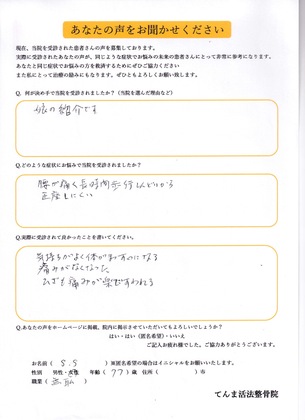 あなたの声をお聞かせください
現在、当院を受診された患者さんの声を募集しております。
実際に受診されたあなたの声が、同じような症状でお悩みの未来の患者さんにとって非常に参考になります。
あなたと同じ症状でお悩みの方を救済するためにぜひご協力ください
また私にとって治療の励みにもなります。ぜひともよろしくお願い致します。
Q. 何が決め手で当院を受診されましたか？（当院を選んだ理由など）
娘の紹介です
Q. どのような症状にお悩みで当院を受診されましたか？
腰が痛く長時間
Q. 実際に受診されて良かったことを書いてください。
気持ちがよく体が
痛みがなくなった
ひざも痛みが
Q. あなたの声をホームページに掲載、院内に掲示させていただいてもよろしいでしょうか？
はい・はい（匿名希望）・いいえ
ご記入お疲れ様でした。ご協力ありがとうございます。
お名前（ S.S ）※匿名希望の場合はイニシャルをお願いいたします。
性別 男性・女性 年齢（ 77 ）歳 住所（ ）市
職業（ ）
てんま活法整骨院